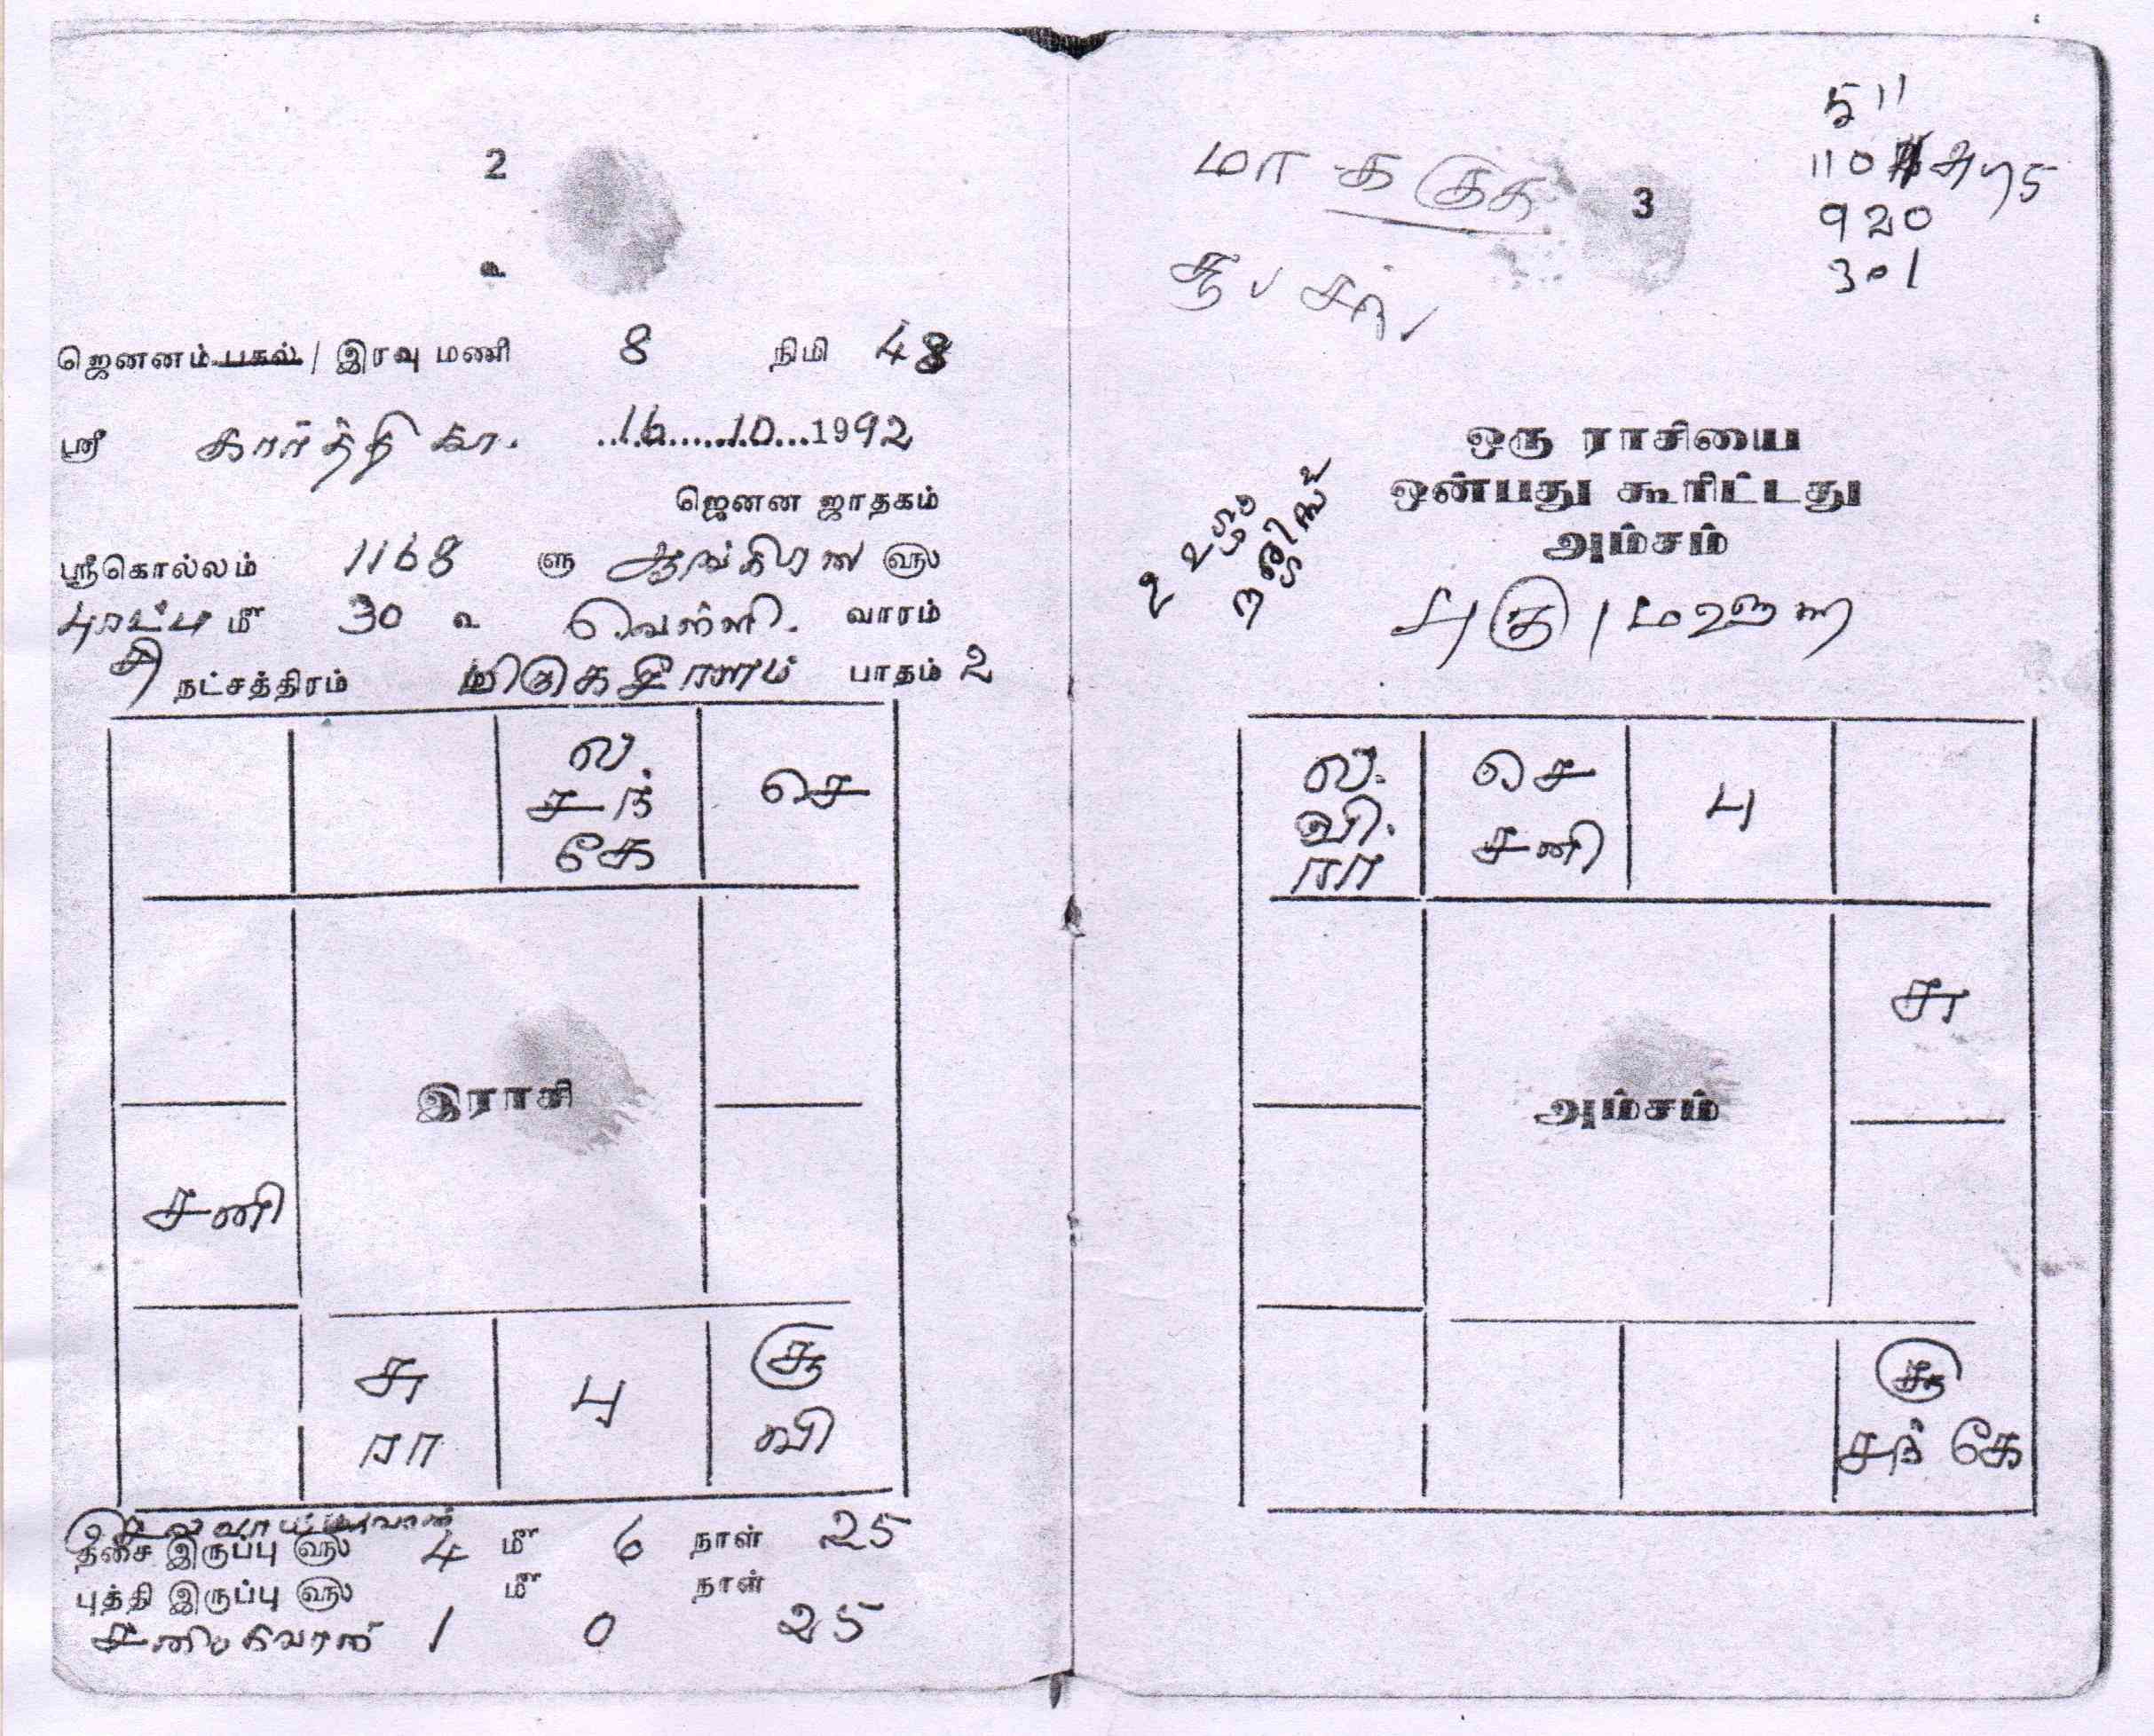 2
உ
ஜெனனம் பகல் / இரவு மணி 8 நிமி 48
ஸ்ரீ கார்த்திகா. 16 10 1992
ஜெனன ஜாதகம்
ஸ்ரீகொல்லம் 1168 ளு ஆங்கிரஸ ௵
புரட்டாசி மீ 30 உ வெள்ளி. வாரம்
நட்சத்திரம் மிருகசீரணம் பாதம் 2
ல.
சந்
கே
செ
இராசி
சனி
சு
ரா
பு
சூ
வி
திசை இருப்பு ௵ 4 மீ 6 நாள் 25
புத்தி இருப்பு ௵ மீ நாள்
1 0 25
3
5 11
110
920
301
ஒரு ராசியை
ஒன்பது கூரிட்டது
அம்சம்
ல.
வி.
ரா
செ
சனி
பு
சு
அம்சம்
சூ
சந் கே